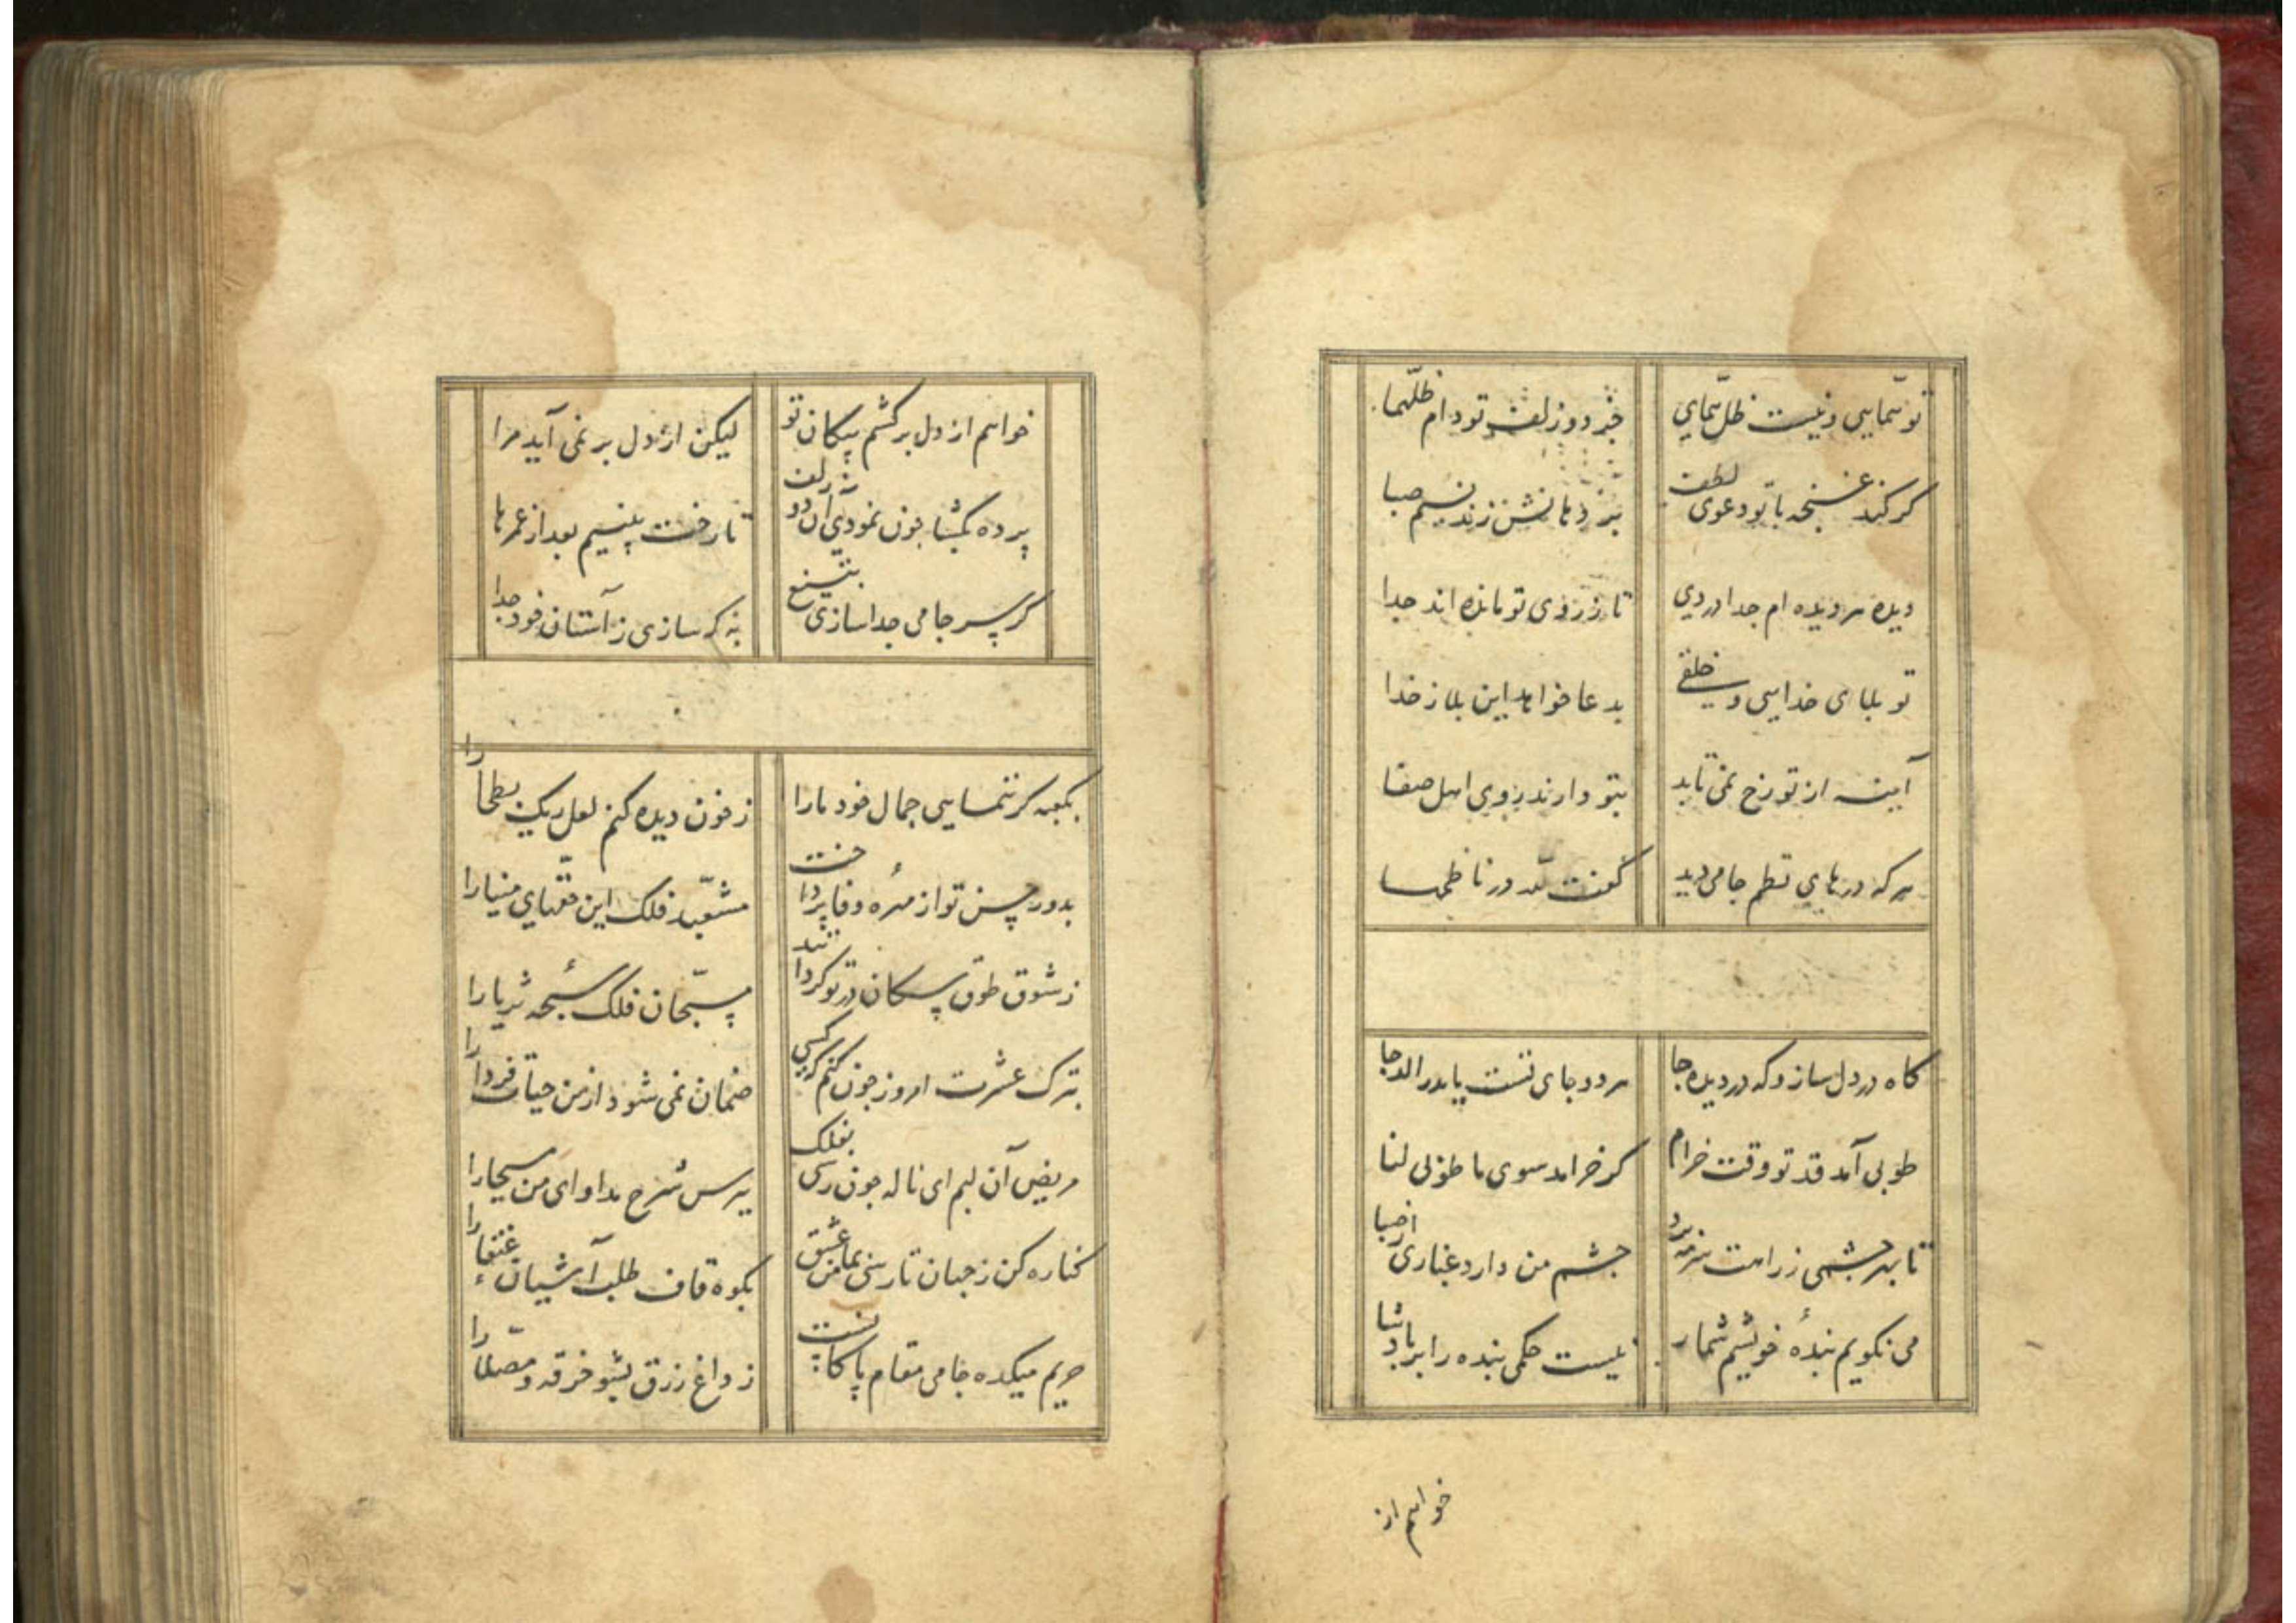 تو همایی و نیست ظل همای جز دو زلف تو دام ظلهما
کر کند غنچه با تو دعوی لطف بر دهانش زند نسیم صبا
دیده هر دیده ام جدا دردی تا ز روی تو مانده اند جدا
تو بلای خدایی و خلقی بدعا خواهد این بلا ز خدا
آینه از تو رخ نمی تابد بتو دارند روی اهل صفا
هر که درهای نظم جامی دید کفت لله در ناظمها
کاه در دل ساز و که در دیده جا هر دو جای تست یا بدر الدجا
طوبی آمد قد تو وقت خرام کر خرامد سوی ما طوبی لنا
تا بهر چشمی ز راهت سرمه برد چشم من دارد غباری از صبا
می نکویم بندهٔ خویشم شمار نیست حکمی بنده را بر پادشا
خواهم از
خواهم از دل بر کشم پیکان تو لیکن از دل بر نمی آید مرا
پرده بکشا چون نمودی آن دو زلف تا رخت بینیم بعد از عمرها
کر سر جامی جدا سازی بتیغ به که سازی ز آستان خود جدا
بکعبه کر ننمایی جمال خود ما را ز خون دیده کنم لعل ریک بطحا را
بدور حسن تو از مهره وفا پرداخت مشعبد فلک این حقهای مینا را
ز شوق طوق سکان در تو کردانند مسبحان فلک سبحهٔ ثریا را
بترک عشرت امروز چون کنم که کسی ضمان نمی شود از من حیات فردا را
مریض آن لبم ای ناله چون رسی بفلک بپرس شرح مداوای من مسیحا را
کناره کن ز جهان تا رسی بمامن عشق بکوه قاف طلب آشیان عنقا را
حریم میکده جامی مقام پاکانست ز داغ زرق بشو خرقه و مصلا را